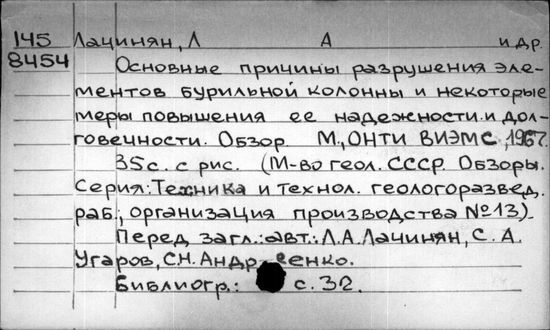 145 Лачинян, Л А и др.
8454 Основные причины разрушения эле-
ментов бурильной колонны и некоторые
меры повышения ее надежности и дол-
говечности. Обзор. М., ОНТИ ВИЭМС, 1967.
35с. с рис. (М-во геол. СССР. Обзоры.
Серия: Техника и технол. геологоразвед.
раб., организация производства №13).
Перед загл.: авт.: Л.А. Лачинян, С. А.
Угаров, С.Н.
Библиогр.: с. 32.